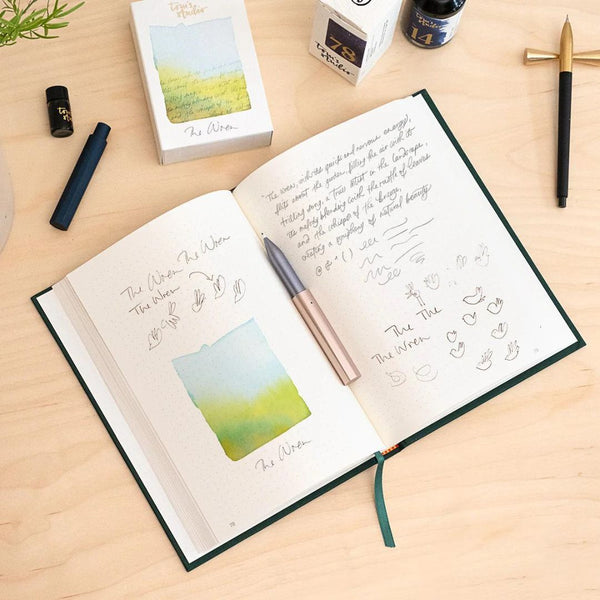 Tom's
Studio
The Wren
Tom's
Studio
78
14
The Wren The Wren
The Wren
The Wren
78
"The Wren, with its quick and nervous energy,
flits about the garden, filling the air with its
trilling song, a true artist in the landscape,
its melody blending with the rustle of leaves
and the whisper of the breeze,
creating a symphony of natural beauty
@ & * ( )
The The
The Wren
79